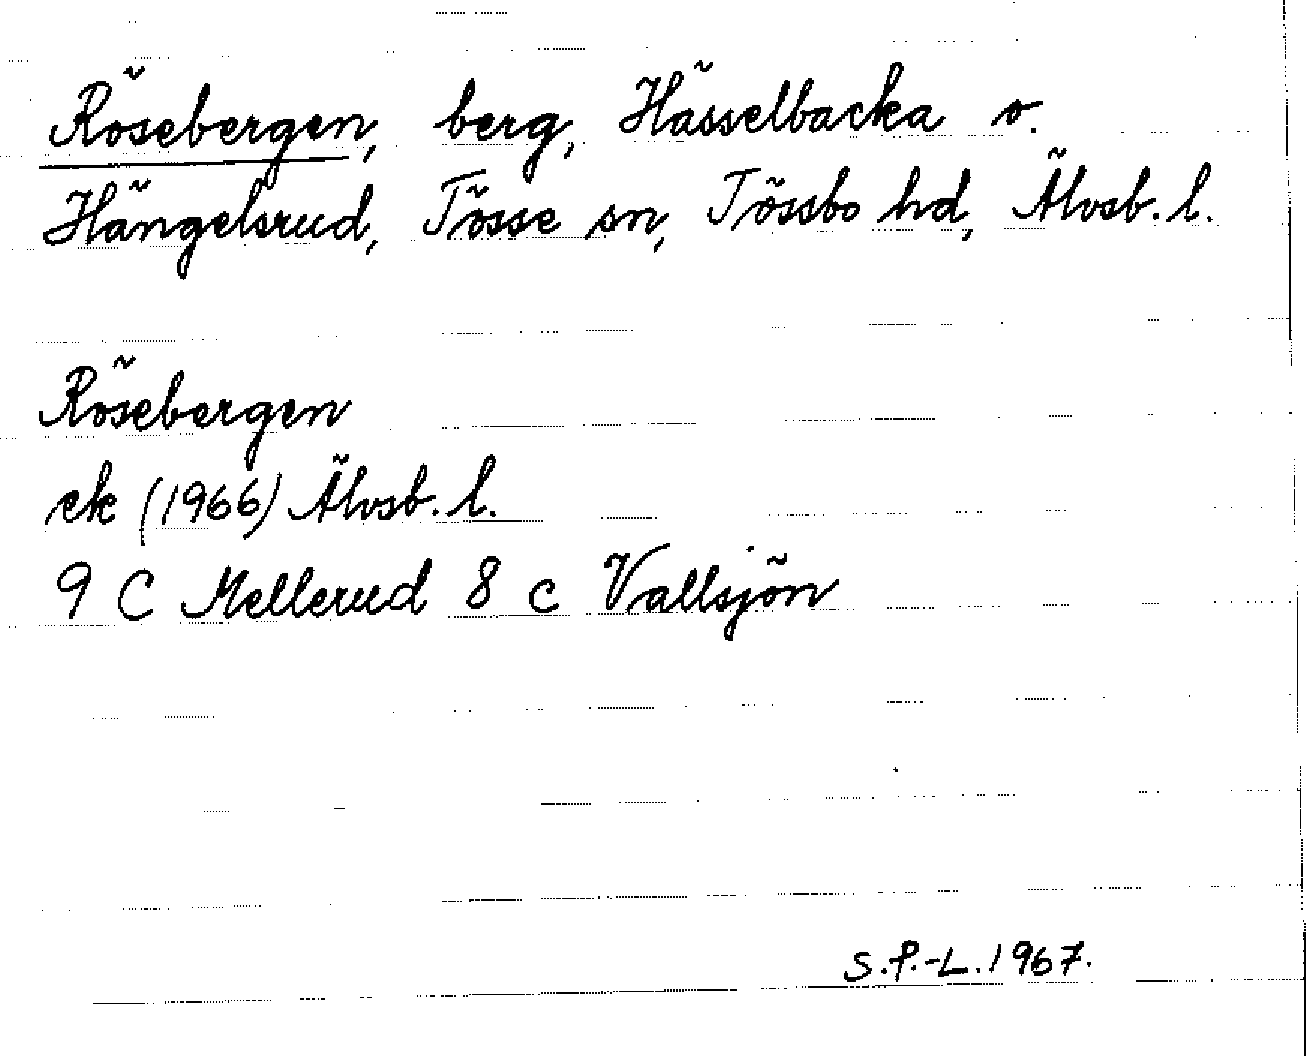 Rösebergen, berg, Hässelbacka o.
Hängelsrud, Tösse sn, Tössbo hd, Älvsb. l.
Rösebergen
ek (1966) Älvsb. l.
9 C Mellerud 8 c Vallsjön
S.P.-L. 1967.